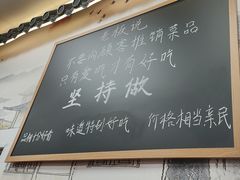 老板说
不要向顾客推销菜品
只有爱吃才有好吃
坚持做
味道特别好吃
价格相当亲民